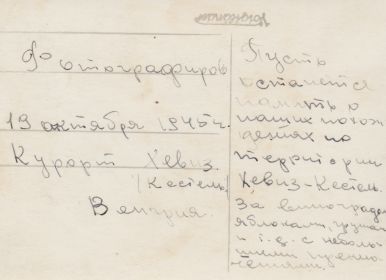 Фотографиров
19 октября 1945 г.
Курорт Хевиз.
/Кестель/
Венгрия.
Пусть
останется
память о
наших похож
дениях по
территории
Хевиз-Кестель.
За виноградом
яблоками, грушами
и т.д. с неболь
шими приклю
чениями.